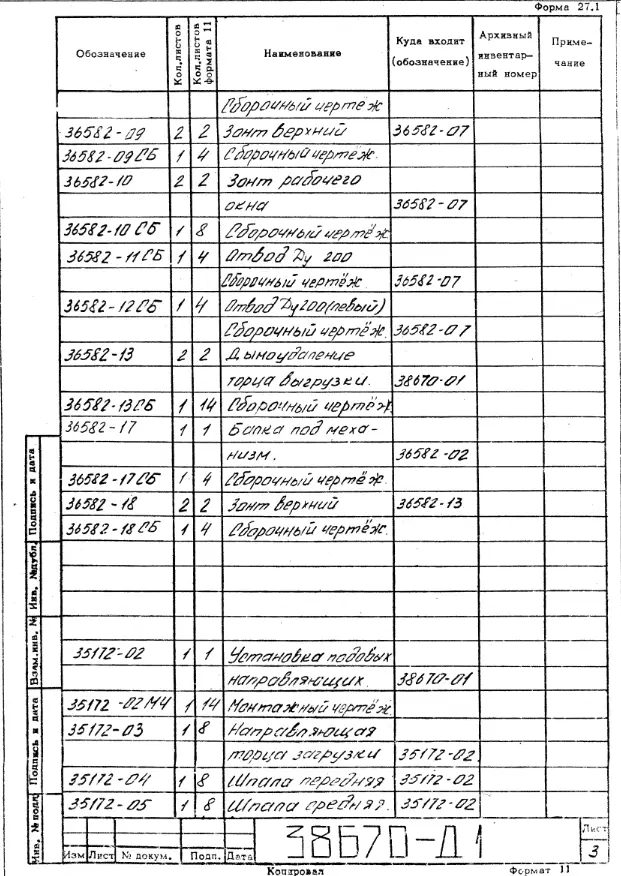 Форма 27.1
Обозначение Кол.листов Кол.листов формата 11 Наименование Куда входит (обозначение) Архивный инвентар- ный номер Приме- чание
Сборочный чертеж
36582-09 2 2 Зонт верхний 36582-07
36582-09СБ 1 4 Сборочный чертёж.
36582-10 2 2 Зонт рабочего
окна 36582-07
36582-10 СБ 1 8 Сборочный чертёж
36582-11СБ 1 4 Отвод Ду 200
Сборочный чертёж 36582-07
36582-12СБ 1 4 Отвод Ду200(левый)
Сборочный чертёж. 36582-07
36582-13 2 2 Дымоудаление
торца выгрузки. 38670-01
36582-13СБ 1 14 Сборочный чертёж
36582-17 1 1 Балка под меха-
низм. 36582-02
36582-17СБ 1 4 Сборочный чертёж.
36582-18 2 2 Зонт верхний 36582-13
36582-18СБ 1 4 Сборочный чертёж.
35172-02 1 1 Установка подовых
направляющих. 38670-01
35172-02МЧ 1 14 Монтажный чертёж.
35172-03 1 8 Направляющая
торца загрузки 35172-02
35172-04 1 8 Шпала передняя 35172-02
35172-05 1 8 Шпала средняя. 35172-02
Инв. №подл Подпись и дата Взам.инв. № Инв. №дубл. Подпись и дата
38670-Д1
Лист
3
Изм Лист № докум. Подп. Дата
Копировал Формат 11